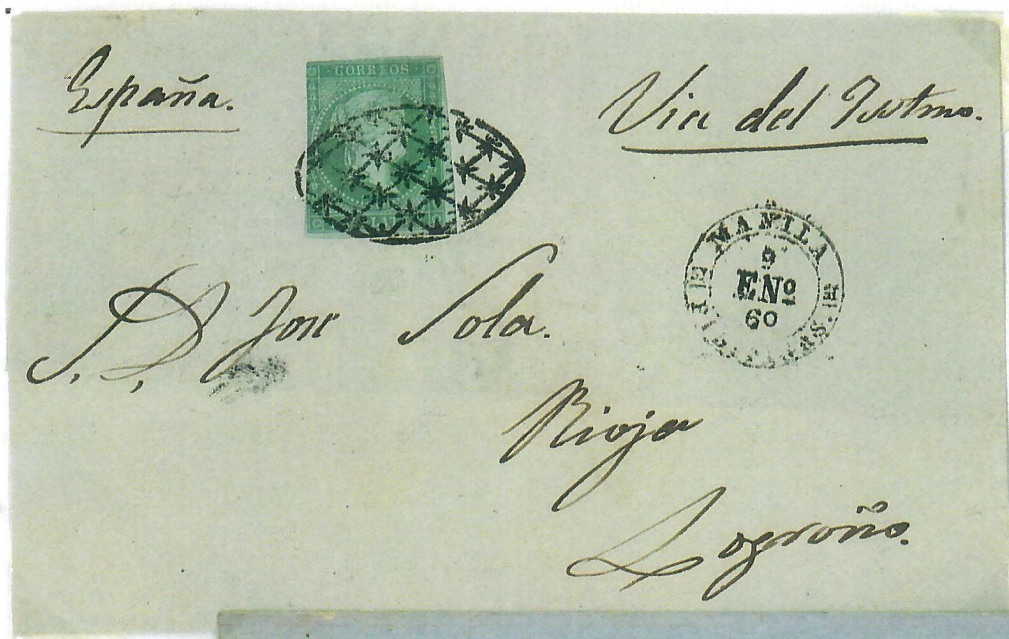 España.
CORREOS
Via del Istmo.
MANILA
9
ENº
60
S. D. Jose Sola.
Rioja
Logroño.